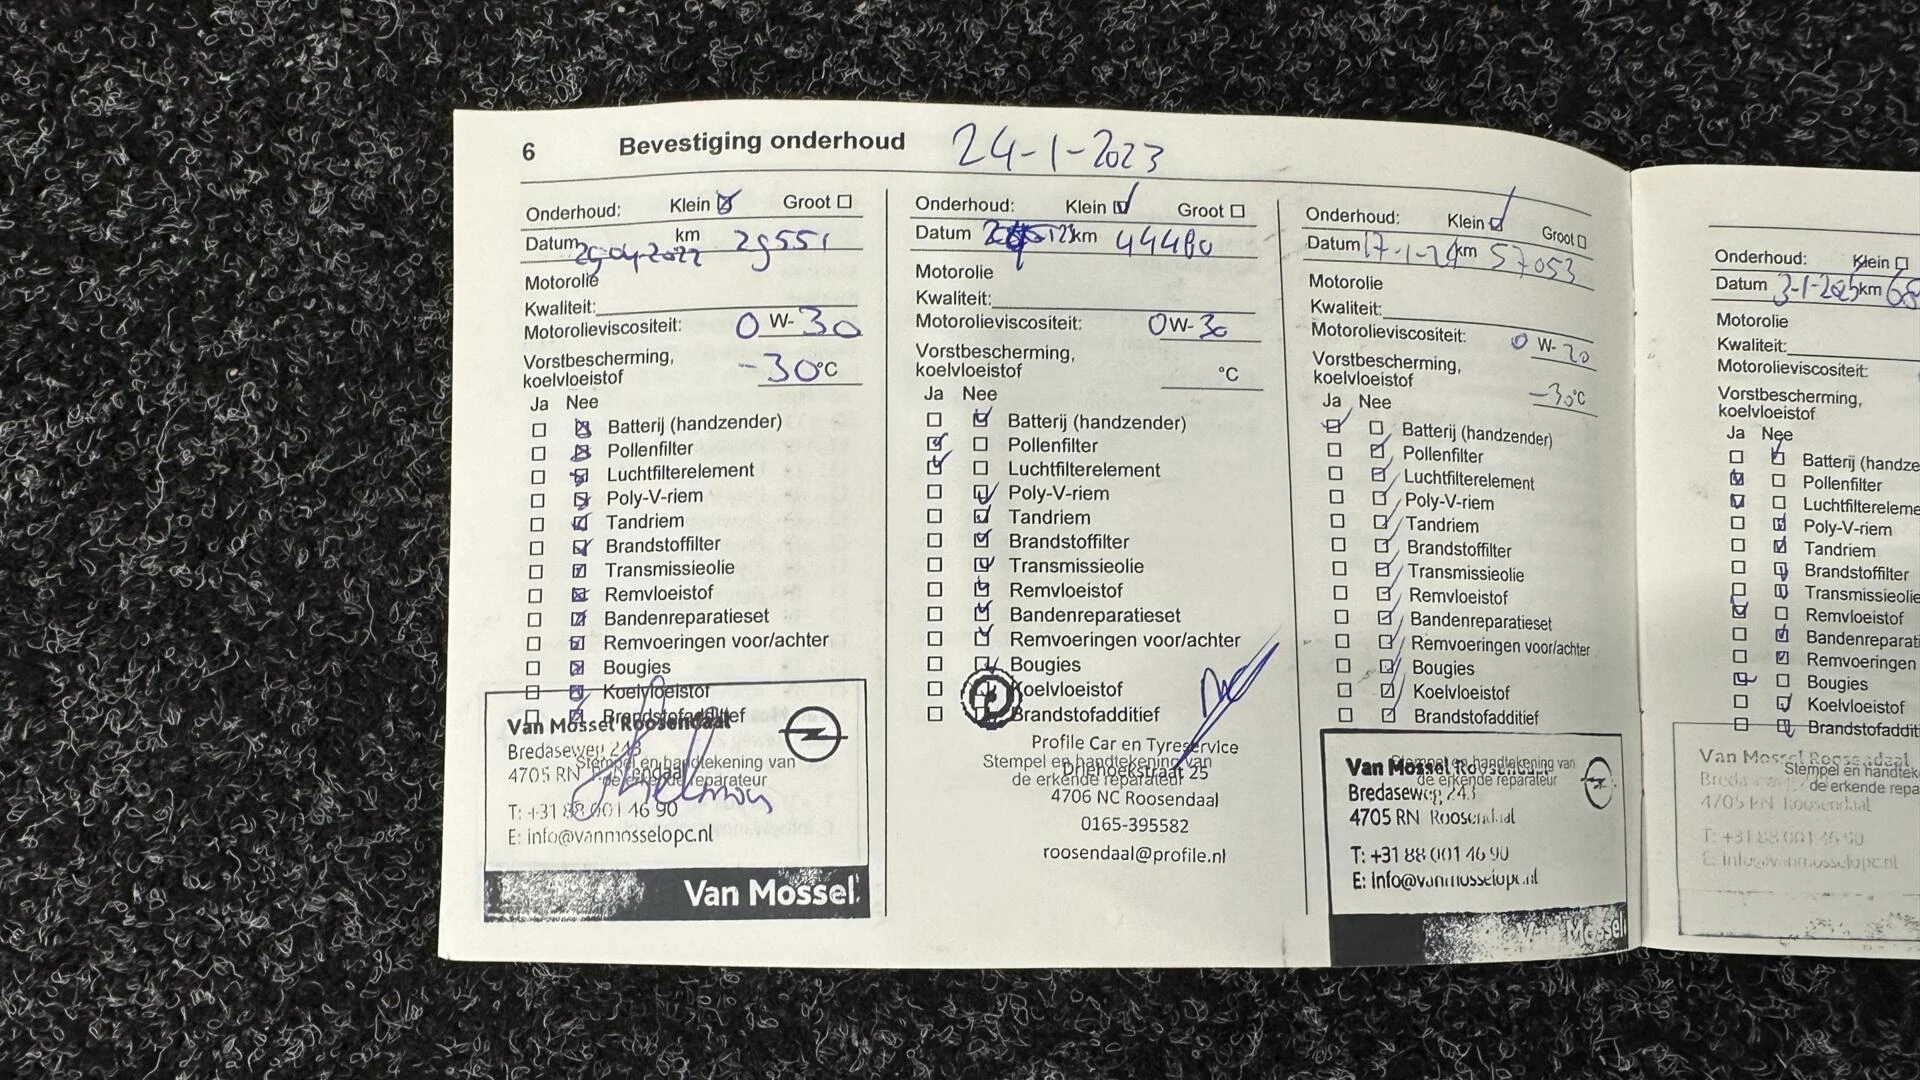 6 Bevestiging onderhoud 24-1-2023
Onderhoud: Klein Groot
Datum 29-04-2022 km 29551
Motorolie
Kwaliteit:
Motorolieviscositeit: 0 W- 30
Vorstbescherming,
koelvloeistof -30°C
Ja Nee
Batterij (handzender)
Pollenfilter
Luchtfilterelement
Poly-V-riem
Tandriem
Brandstoffilter
Transmissieolie
Remvloeistof
Bandenreparatieset
Remvoeringen voor/achter
Bougies
Koelvloeistof
Brandstofadditief
Van Mossel Roosendaal
Bredaseweg 243
Stempel en handtekening van
4705 RN
de erkende reparateur
T: +31 88 001 46 90
E: info@vanmosselopc.nl
Van Mossel
Onderhoud: Klein Groot
Datum km 44480
Motorolie
Kwaliteit:
Motorolieviscositeit: 0 W- 30
Vorstbescherming,
koelvloeistof °C
Ja Nee
Batterij (handzender)
Pollenfilter
Luchtfilterelement
Poly-V-riem
Tandriem
Brandstoffilter
Transmissieolie
Remvloeistof
Bandenreparatieset
Remvoeringen voor/achter
Bougies
Koelvloeistof
Brandstofadditief
Profile Car en Tyreservice
Stempel en handtekening van
Driehoekstraat 25
de erkende reparateur
4706 NC Roosendaal
0165-395582
roosendaal@profile.nl
Onderhoud: Klein Groot
Datum 17-1-24 km 57053
Motorolie
Kwaliteit:
Motorolieviscositeit: 0 W- 20
Vorstbescherming,
koelvloeistof -30°C
Ja Nee
Batterij (handzender)
Pollenfilter
Luchtfilterelement
Poly-V-riem
Tandriem
Brandstoffilter
Transmissieolie
Remvloeistof
Bandenreparatieset
Remvoeringen voor/achter
Bougies
Koelvloeistof
Brandstofadditief
Stempel en handtekening van
Van Mossel Roosendaal
de erkende reparateur
Bredaseweg 243
4705 RN Roosendaal
T: +31 88 001 46 90
E: info@vanmosselopc.nl
Van Mossel
Onderhoud: Klein
Datum 3-1-2025 km 68
Motorolie
Kwaliteit:
Motorolieviscositeit:
Vorstbescherming,
koelvloeistof
Ja Nee
Batterij (handze
Pollenfilter
Luchtfiltereleme
Poly-V-riem
Tandriem
Brandstoffilter
Transmissieolie
Remvloeistof
Bandenreparati
Remvoeringen
Bougies
Koelvloeistof
Brandstofadditi
Van Mossel Roosendaal
Stempel en handtek
de erkende repa
4705 RN Roosendaal
T: +31 88 001 46 90
E: info@vanmosselopc.nl